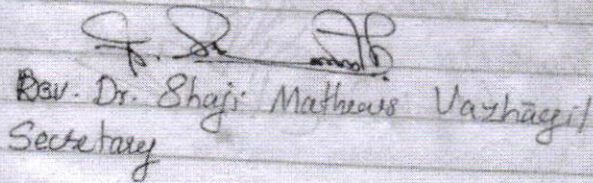 Rev. Dr. Shaji Mathews Vazhayil
Secretary